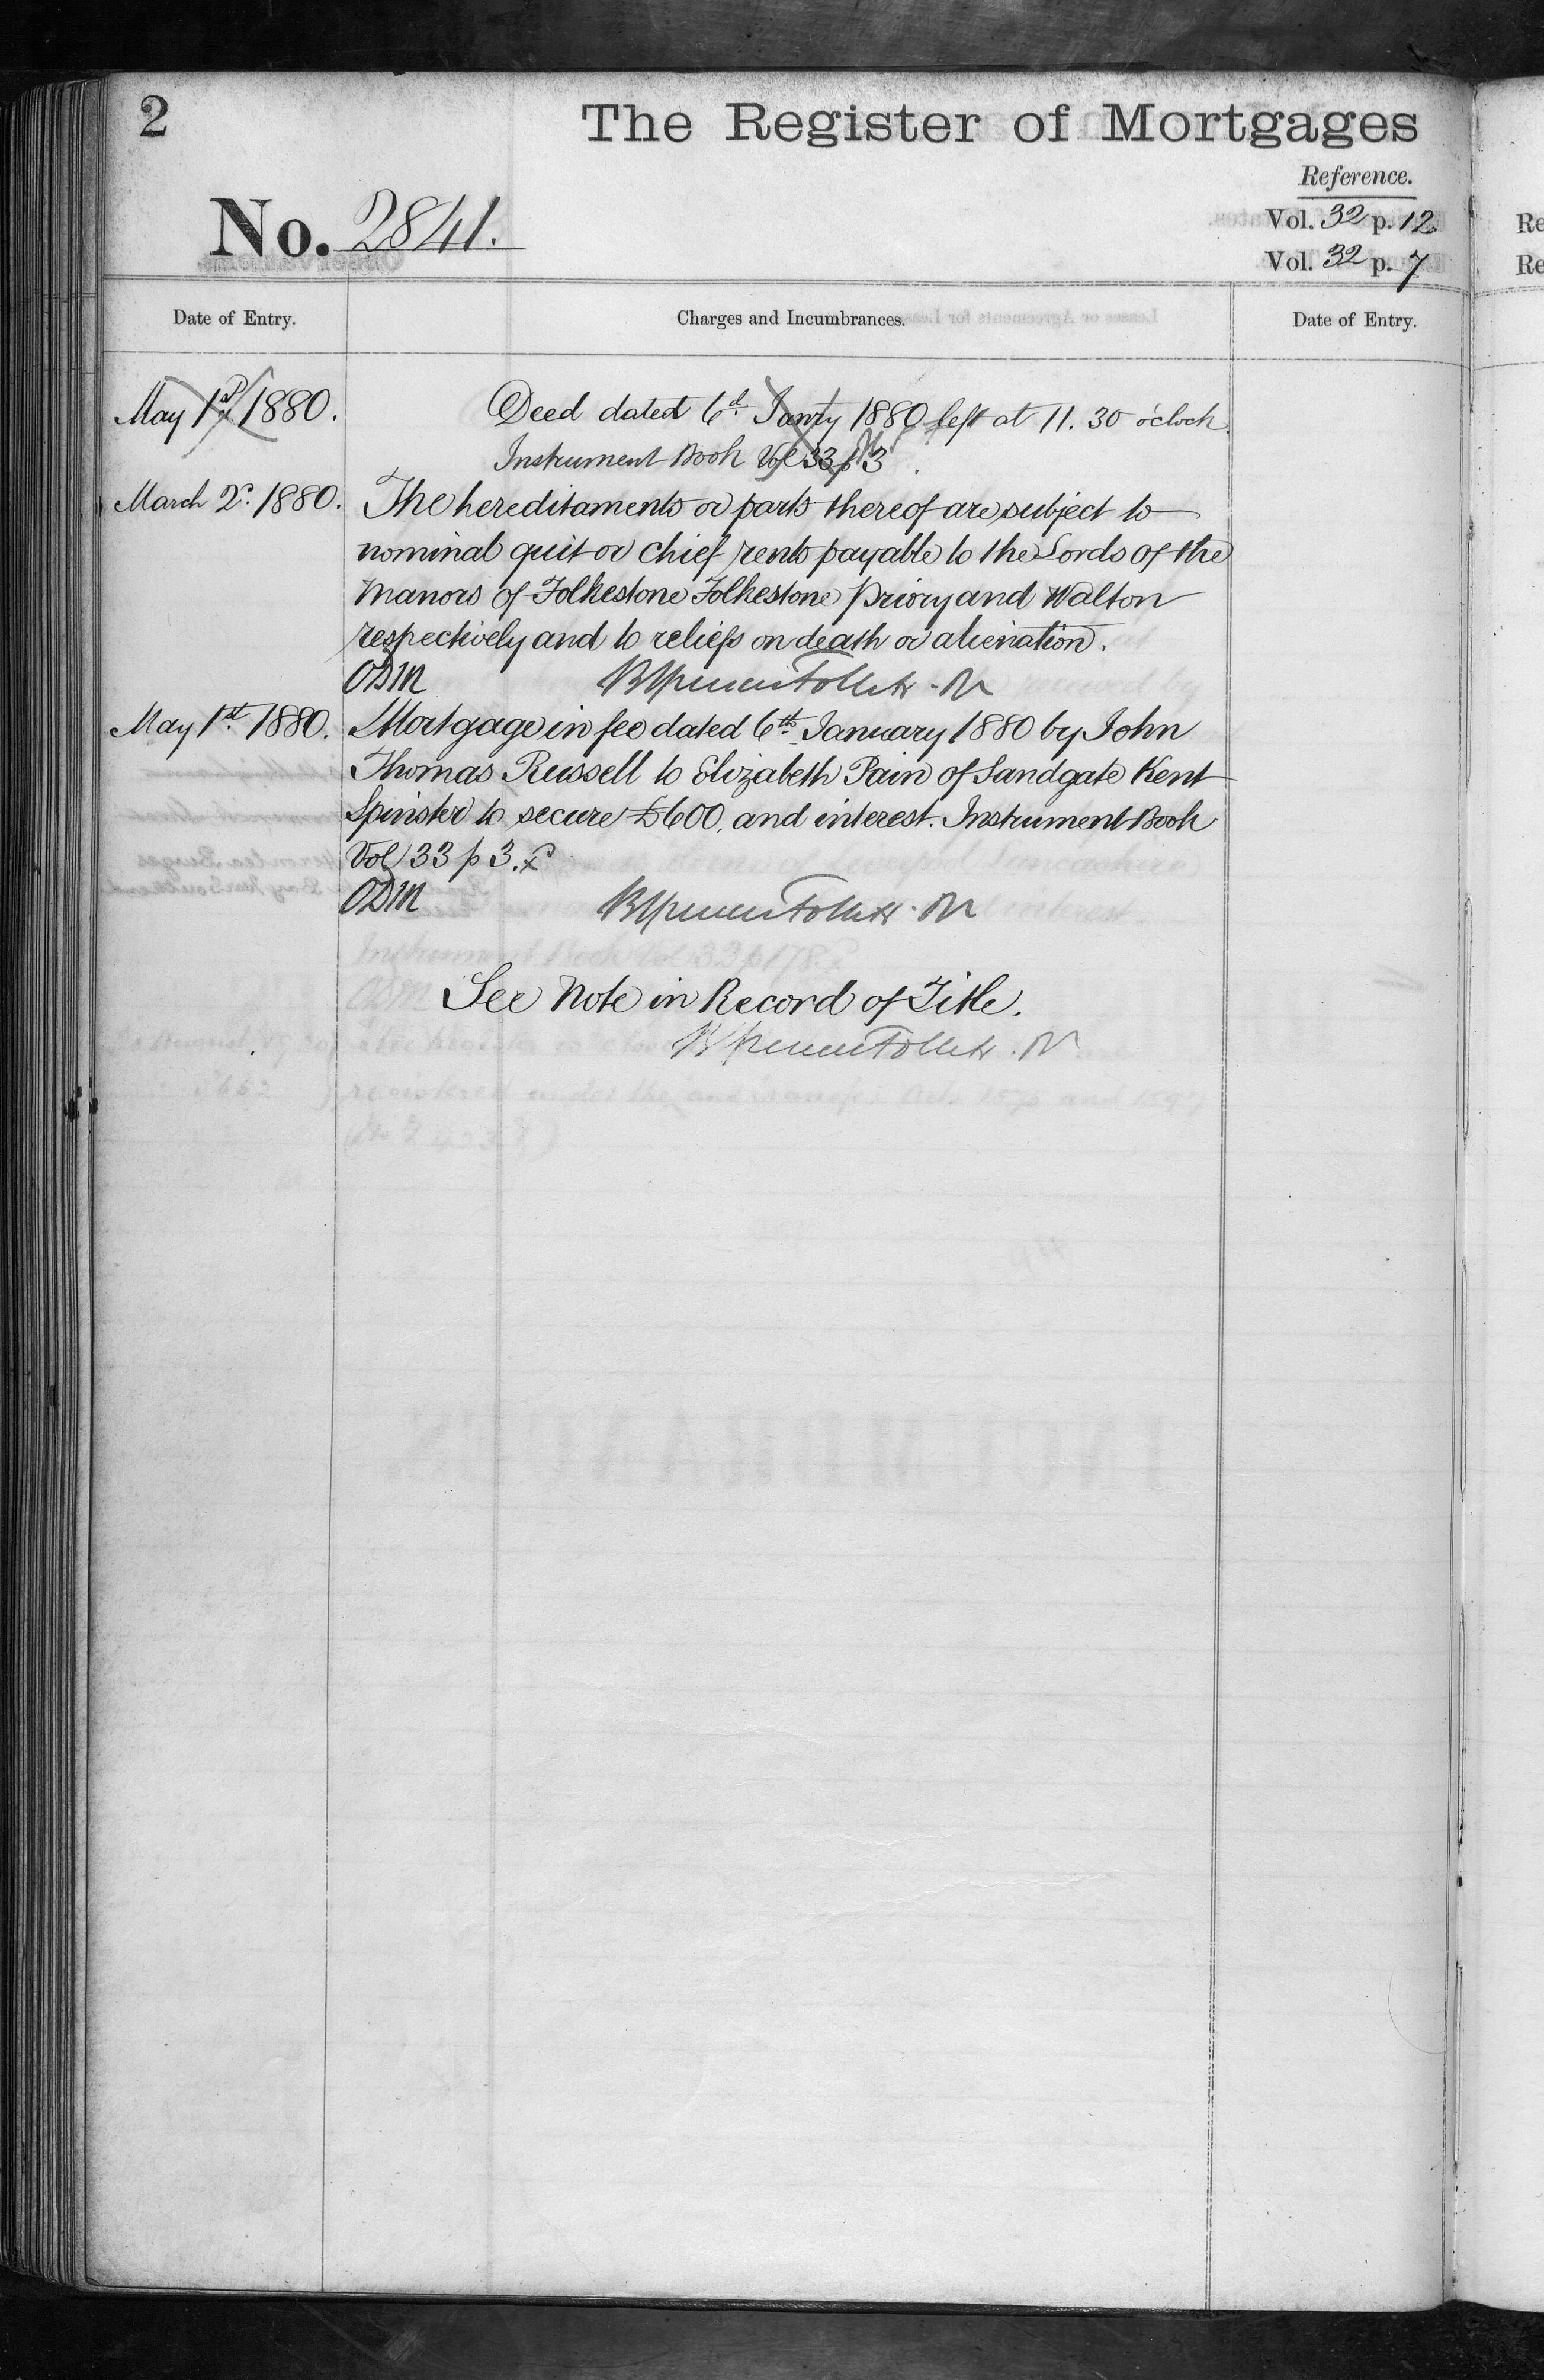 2
The Register of Mortgages
Reference.
No. 2841.
Vol. 32 p. 12.
Vol. 32 p. 7
Date of Entry.
Charges and Incumbrances.
Date of Entry.
May 1st 1880.
Deed dated 6th Janry 1880 left at 11.30 o'clock.
Instrument Book Vol 33 p 3.
March 2d. 1880.
The hereditaments or parts thereof are subject to
nominal quit or chief rents payable to the Lords of the
Manors of Folkestone Folkestone Priory and Walton
respectively and to reliefs on death or alienation.
ODM
May 1st 1880.
Mortgage in fee dated 6th January 1880 by John
Thomas Russell to Elizabeth Pain of Sandgate Kent
Spinster to secure £600, and interest. Instrument Book
Vol 33 p 3.
ODM
See Note in Record of Title.
Re
Re